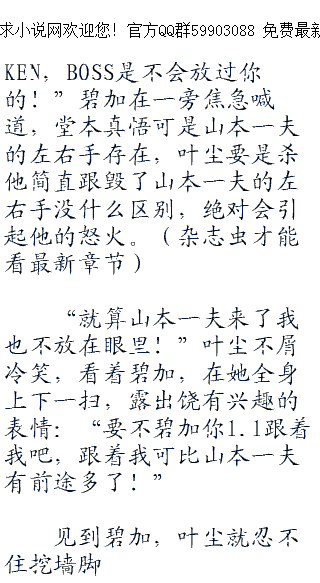 求小说网欢迎您！官方QQ群59903088 免费最新
KEN，BOSS是不会放过你
的！”碧加在一旁焦急喊
道，堂本真悟可是山本一夫
的左右手存在，叶尘要是杀
他简直跟毁了山本一夫的左
右手没什么区别，绝对会引
起他的怒火。（杂志虫才能
看最新章节）
“就算山本一夫来了我
也不放在眼里！”叶尘不屑
冷笑，看着碧加，在她全身
上下一扫，露出饶有兴趣的
表情：“要不碧加你1.1跟着
我吧，跟着我可比山本一夫
有前途多了！”
见到碧加，叶尘就忍不
住挖墙脚